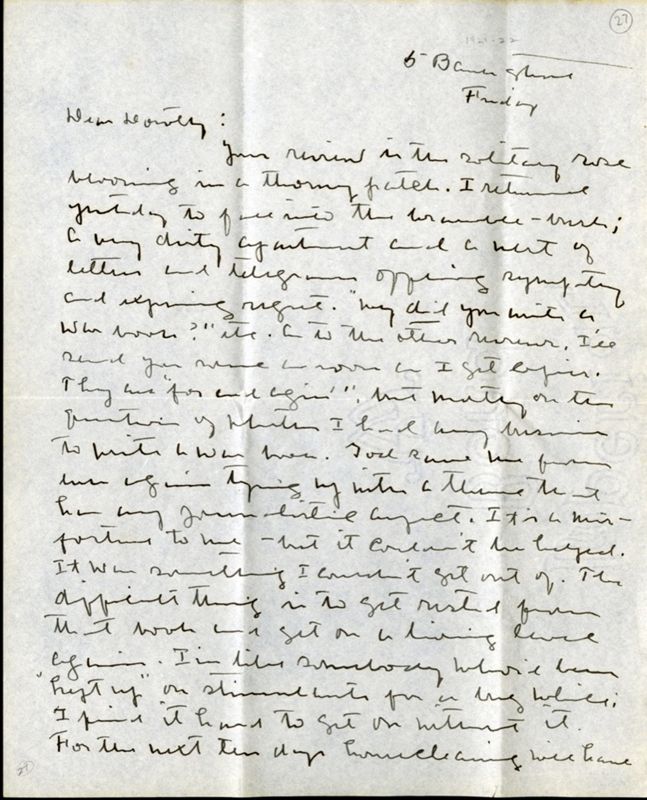 27
1921-22
5 Bank Street
Friday
Dear Dorothy:
Your review is the solitary rose
blooming in a thorny patch. I returned
yesterday to face into the bramble-bush;
a very dirty apartment and a nest of
letters and telegrams offering sympathy
and expressing regret. "Why did you write a
War book?" etc. As to the other reviews, I'll
send you some as soon as I get copies.
They are "for and agin'", but mostly on the
question of whether I had any business
to write a war book. God save me from
ever again tying up with a theme that
has any journalistic aspect. It's a mis-
fortune to me - but it couldn't be helped.
It was something I couldn't get out of. The
difficult thing is to get rested from
that book and get on a living level
again. I'm like somebody who's been
"kept up" on stimulants for a long while;
I find it hard to get on without it.
For the next ten days housecleaning will have
27